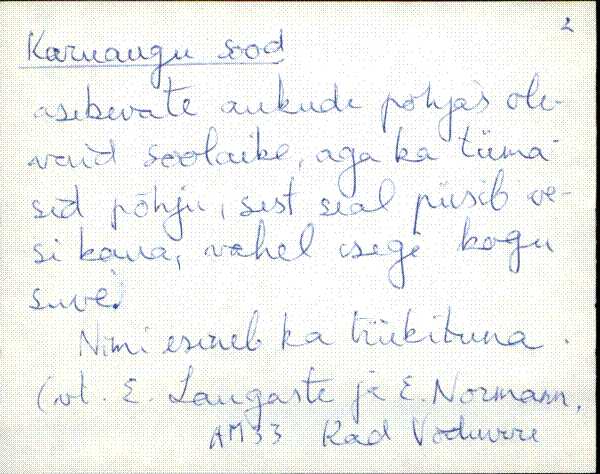 2
Karuaugu sood
asekevate aukude põhjas ole-
vaid soolaike, aga ka tüma-
sid põhju, sest seal püsib ve-
si kaua, vahel isegi kogu
suve.
Nimi esineb ka trükituna.
(vt. E. Laugaste ja E. Normann,
AM33 Rad Voduvere